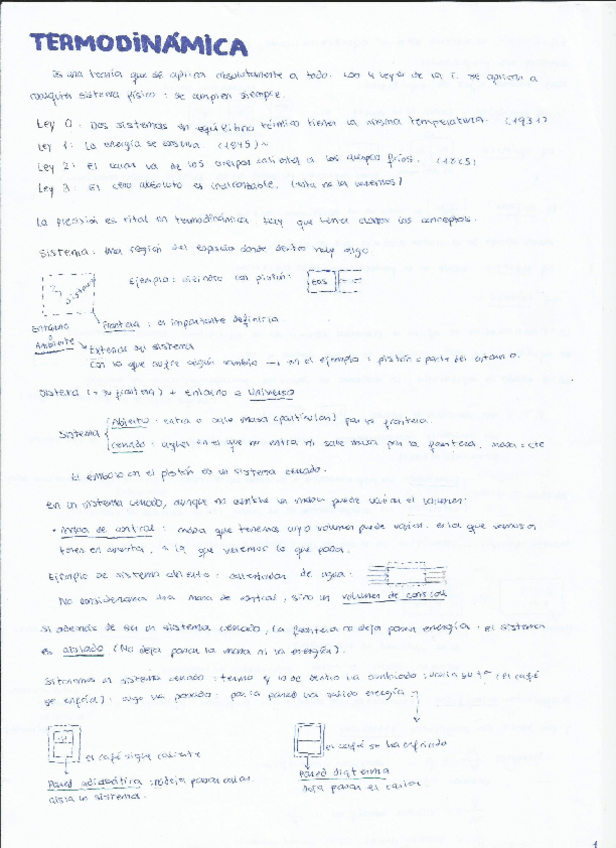 TERMODINÁMICA
Es una teoría que se aplica absolutamente a todo. Los 4 leyes de la T. se aplican a
cualquier sistema físico: se cumplen siempre.
Ley 0: Dos sistemas en equilibrio térmico tienen la misma temperatura. (1931)
Ley 1: La energía se conserva. (1845)
Ley 2: El calor va de los cuerpos calientes a los cuerpos fríos. (1865)
Ley 3: El cero absoluto es inalcanzable. (esta no la veremos)
La precisión es vital en termodinámica. Hay que tener claros los conceptos.
Sistema: Una región del espacio donde dentro hay algo.
Sistema
Ejemplo: cilindro con pistón:
GAS
Entorno o Ambiente
Frontera: es importante definirla
Exterior del sistema
Con lo que sufre algún cambio → en el ejemplo: pistón = parte del entorno.
Sistema (+ su frontera) + Entorno = Universo
Sistema
Abierto: entra o sale masa (partículas) por la frontera.
Cerrado: aquel en el que no entra ni sale masa por la frontera. masa = cte
El émbolo en el pistón es un sistema cerrado.
En un sistema cerrado, aunque no cambie la masa puede variar el volumen.
• Masa de control: masa que tenemos cuyo volumen puede variar. Es la que vamos a
tener en cuenta, a la que veremos lo que pasa.
Ejemplo de sistema abierto: calentador de agua:
No consideramos una masa de control, sino un volumen de control
Si además de ser un sistema cerrado, la frontera no deja pasar energía: el sistema
es aislado (No deja pasar la masa ni la energía).
Si tenemos un sistema cerrado: termo y lo de dentro ha cambiado: varía su Tª (el café
se enfría): algo ha pasado: por la pared ha salido energía
el café sigue caliente
el café se ha enfriado
Pared adiabática: no deja pasar calor.
aísla un sistema.
Pared diaterma
deja pasar el calor.
1